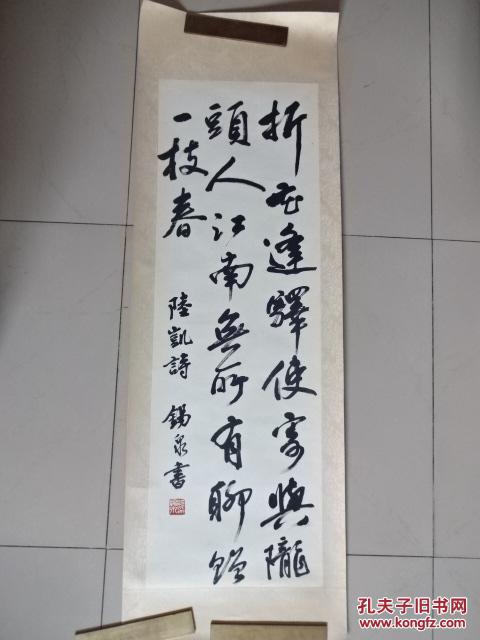 折花逢驛使寄與隴
頭人江南無所有聊贈
一枝春
陸凱詩 錫泉書
孔夫子旧书网
www.kongfz.com